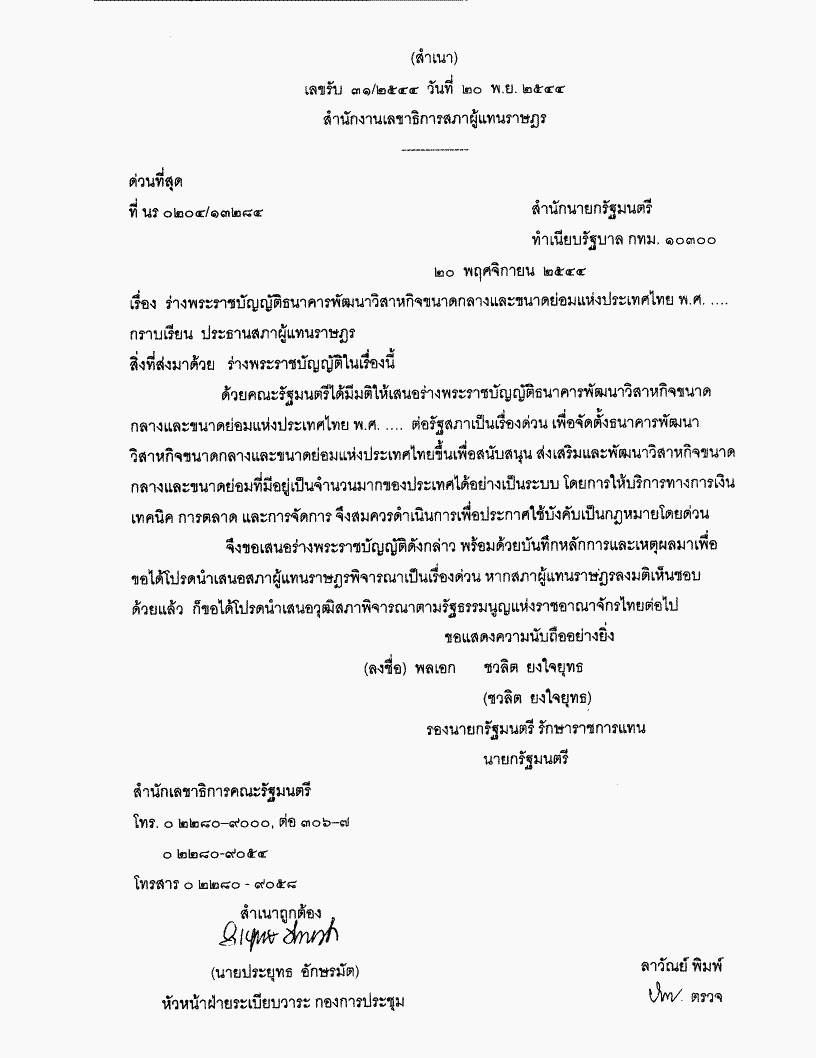 (สำเนา)
เลขรับ ๓๑/๒๕๔๔ วันที่ ๒๐ พ.ย. ๒๕๔๔
สำนักงานเลขาธิการสภาผู้แทนราษฎร
ด่วนที่สุด
ที่ นร ๐๒๐๔/๑๓๒๘๔
สำนักนายกรัฐมนตรี
ทำเนียบรัฐบาล กทม. ๑๐๓๐๐
๒๐ พฤศจิกายน ๒๕๔๔
เรื่อง ร่างพระราชบัญญัติธนาคารพัฒนาวิสาหกิจขนาดกลางและขนาดย่อมแห่งประเทศไทย พ.ศ. ....
กราบเรียน ประธานสภาผู้แทนราษฎร
สิ่งที่ส่งมาด้วย ร่างพระราชบัญญัติในเรื่องนี้
ด้วยคณะรัฐมนตรีได้มีมติให้เสนอร่างพระราชบัญญัติธนาคารพัฒนาวิสาหกิจขนาด
กลางและขนาดย่อมแห่งประเทศไทย พ.ศ. .... ต่อรัฐสภาเป็นเรื่องด่วน เพื่อจัดตั้งธนาคารพัฒนา
วิสาหกิจขนาดกลางและขนาดย่อมแห่งประเทศไทยขึ้นเพื่อสนับสนุน ส่งเสริมและพัฒนาวิสาหกิจขนาด
กลางและขนาดย่อมที่มีอยู่เป็นจำนวนมากของประเทศได้อย่างเป็นระบบ โดยการให้บริการทางการเงิน
เทคนิค การตลาด และการจัดการ จึงสมควรดำเนินการเพื่อประกาศใช้บังคับเป็นกฎหมายโดยด่วน
จึงขอเสนอร่างพระราชบัญญัติดังกล่าว พร้อมด้วยบันทึกหลักการและเหตุผลมาเพื่อ
ขอได้โปรดนำเสนอสภาผู้แทนราษฎรพิจารณาเป็นเรื่องด่วน หากสภาผู้แทนราษฎรลงมติเห็นชอบ
ด้วยแล้ว ก็ขอได้โปรดนำเสนอวุฒิสภาพิจารณาตามรัฐธรรมนูญแห่งราชอาณาจักรไทยต่อไป
ขอแสดงความนับถืออย่างยิ่ง
(ลงชื่อ) พลเอก ชวลิต ยงใจยุทธ
(ชวลิต ยงใจยุทธ)
รองนายกรัฐมนตรี รักษาราชการแทน
นายกรัฐมนตรี
สำนักเลขาธิการคณะรัฐมนตรี
โทร. ๐ ๒๒๘๐-๙๐๐๐, ต่อ ๓๐๖-๗
๐ ๒๒๘๐-๙๐๕๔
โทรสาร ๐ ๒๒๘๐ - ๙๐๕๘
สำเนาถูกต้อง
(นายประยุทธ อักษรมัต)
หัวหน้าฝ่ายระเบียบวาระ กองการประชุม
ลาวัณย์ พิมพ์
ตรวจ